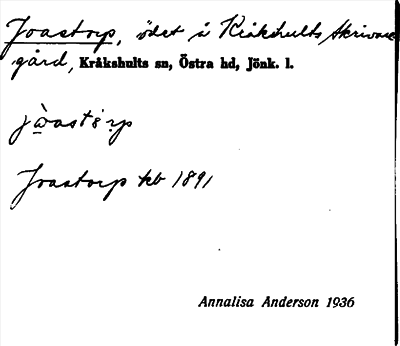 Joastorp, ödet å Kråkshults Skrivare
gård, Kråkshults sn, Östra hd, Jönk. l.
Joastorp kb 1891
Annalisa Anderson 1936